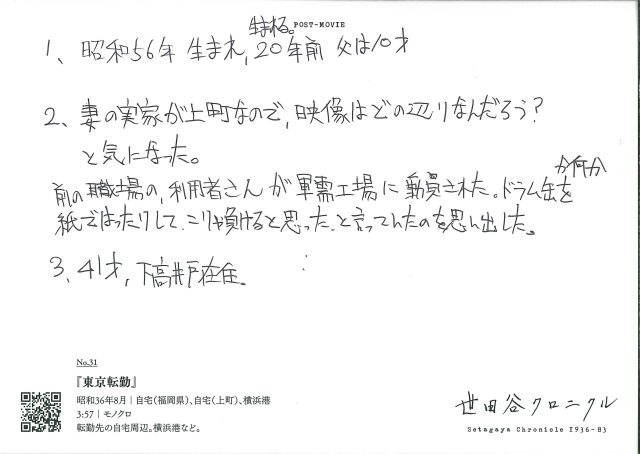 生まれる。
POST-MOVIE
1、昭和56年 生まれ, 20年前 父は10才
2、妻の実家が上町なので, 映像はどの辺りなんだろう?
と気になった。
か何か
前の職場の, 利用者さんが軍需工場に動員された。ドラム缶を
紙ではったりして、こりゃ負けると思った、と言っていたのを思い出した。
3、41才, 下高井戸在住。
No.31
『東京転勤』
昭和36年8月|自宅(福岡県)、自宅(上町)、横浜港
3:57|モノクロ
転勤先の自宅周辺。横浜港など。
世田谷クロニクル
Setagaya Chronicle 1936-83